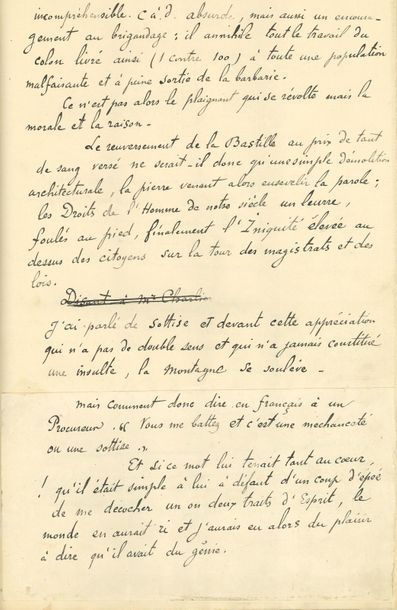 incompréhensible. C'à'd. absurde, mais aussi un encoura-
gement au brigandage ; il annihile tout le travail du
colon livré ainsi (1 contre 100) à toute une population
malfaisante et à peine sortie de la barbarie.
Ce n'est pas alors le plaignant qui se révolte mais la
morale et la raison -
Le renversement de la Bastille au prix de tant
de sang versé ne serait-il donc qu'une simple démolition
architecturale, la pierre venant alors ensevelir la parole ;
les Droits de l'Homme de notre siècle un leurre,
foulés au pied, finalement l'Iniquité élevée au
dessus des citoyens sur la tour des magistrats et des
lois.
Disant à Mr Charlier
J'ai parlé de Sottise et devant cette appréciation
qui n'a pas de double sens et qui n'a jamais constitué
une insulte, la Montagne se soulève -
mais comment donc dire en français à un
Procureur. « Vous me battez et c'est une méchanceté
ou une sottise. »
Et si ce mot lui tenait tant au coeur,
! qu'il était simple à lui à défaut d'un coup d'épée
de me décocher un ou deux traits d'Esprit, le
monde en aurait ri et j'aurais eu alors du plaisir
à dire qu'il avait du génie.